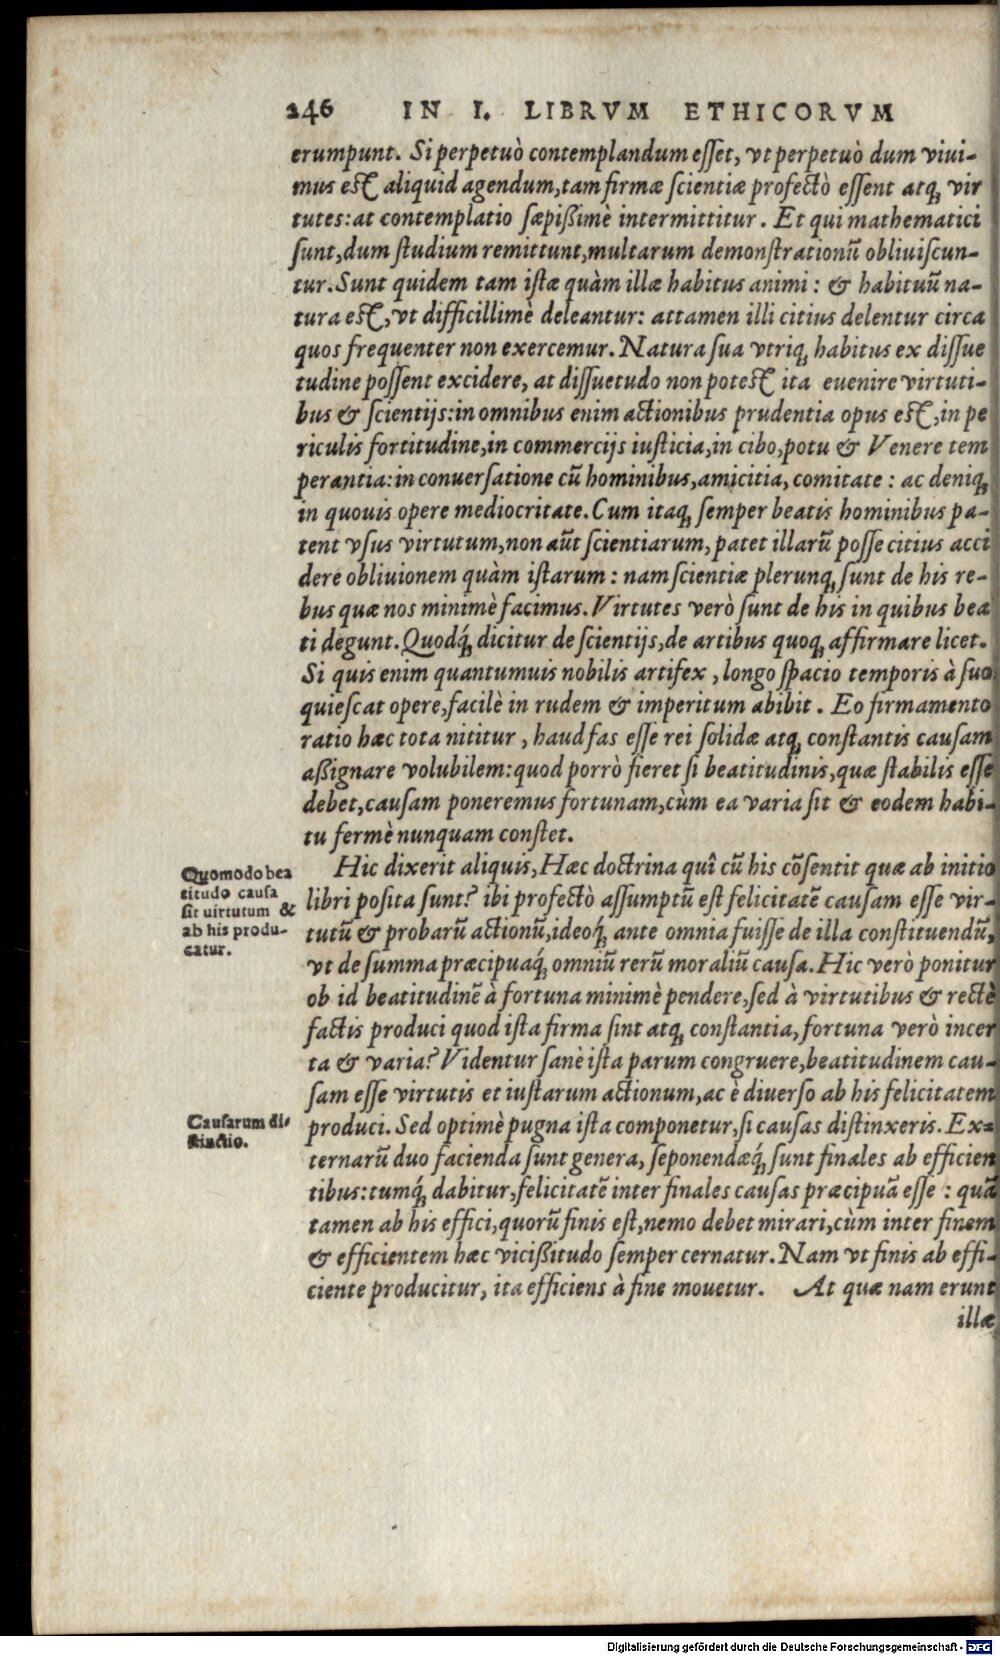 246 IN I. LIBRVM ETHICORVM
erumpunt. Si perpetuò contemplandum eſſet, vt perpetuò dum viui-
mus eſt aliquid agendum, tam firmæ ſcientiæ profectò eſſent atq; vir
tutes: at contemplatio ſæpißimè intermittitur. Et qui mathematici
ſunt, dum ſtudium remittunt, multarum demonſtrationũ obliuiſcun-
tur. Sunt quidem tam iſtæ quàm illæ habitus animi: & habituũ na-
tura eſt, vt difficillimè deleantur: attamen illi citius delentur circa
quos frequenter non exercemur. Natura ſua vtriq; habitus ex diſſue
tudine poſſent excidere, at diſſuetudo non poteſt ita euenire virtuti-
bus & ſcientijs: in omnibus enim actionibus prudentia opus eſt, in pe
riculis fortitudine, in commercijs iuſticia, in cibo, potu & Venere tem
perantia: in conuerſatione cũ hominibus, amicitia, comitate: ac deniq;
in quouis opere mediocritate. Cum itaq; ſemper beatis hominibus pa-
tent vſus virtutum, non aũt ſcientiarum, patet illarũ poſſe citius acci
dere obliuionem quàm iſtarum: nam ſcientiæ plerunq; ſunt de his re-
bus quæ nos minimè facimus. Virtutes verò ſunt de his in quibus bea
ti degunt. Quodq́; dicitur de ſcientijs, de artibus quoq; affirmare licet.
Si quis enim quantumuis nobilis artifex, longo ſpacio temporis à ſuo
quieſcat opere, facilè in rudem & imperitum abibit. Eo firmamento
ratio hæc tota nititur, haud fas eſſe rei ſolidæ atq; conſtantis cauſam
aßignare volubilem: quod porrò fieret ſi beatitudinis, quæ ſtabilis eſſe
debet, cauſam poneremus fortunam, cùm ea varia ſit & eodem habi-
tu fermè nunquam conſtet.
Quomodo bea
titudo cauſa
ſit uirtutum &
ab his produ-
catur.
Hic dixerit aliquis, Hæc doctrina quî cũ his cõſentit quæ ab initio
libri poſita ſunt? ibi profectò aſſumptũ eſt felicitatẽ cauſam eſſe vir-
tutũ & probarũ actionũ, ideoq́; ante omnia fuiſſe de illa conſtituendũ,
vt de ſumma præcipuaq́; omniũ rerũ moraliũ cauſa. Hic verò ponitur
ob id beatitudinẽ à fortuna minimè pendere, ſed à virtutibus & rectè
factis produci quod iſta firma ſint atq; conſtantia, fortuna verò incer
ta & varia? Videntur ſanè iſta parum congruere, beatitudinem cau-
ſam eſſe virtutis et iuſtarum actionum, ac è diuerſo ab his felicitatem
Cauſarum di-
ſtinctio.
produci. Sed optimè pugna iſta componetur, ſi cauſas diſtinxeris. Ex-
ternarũ duo facienda ſunt genera, ſeponendæq́; ſunt finales ab efficien
tibus: tumq́; dabitur, felicitatẽ inter finales cauſas præcipuã eſſe: quã
tamen ab his effici, quorũ finis eſt, nemo debet mirari, cùm inter finem
& efficientem hæc vicißitudo ſemper cernatur. Nam vt finis ab effi-
ciente producitur, ita efficiens à fine mouetur. At quæ nam erunt
illæ
Digitalisierung gefördert durch die Deutsche Forschungsgemeinschaft - DFG